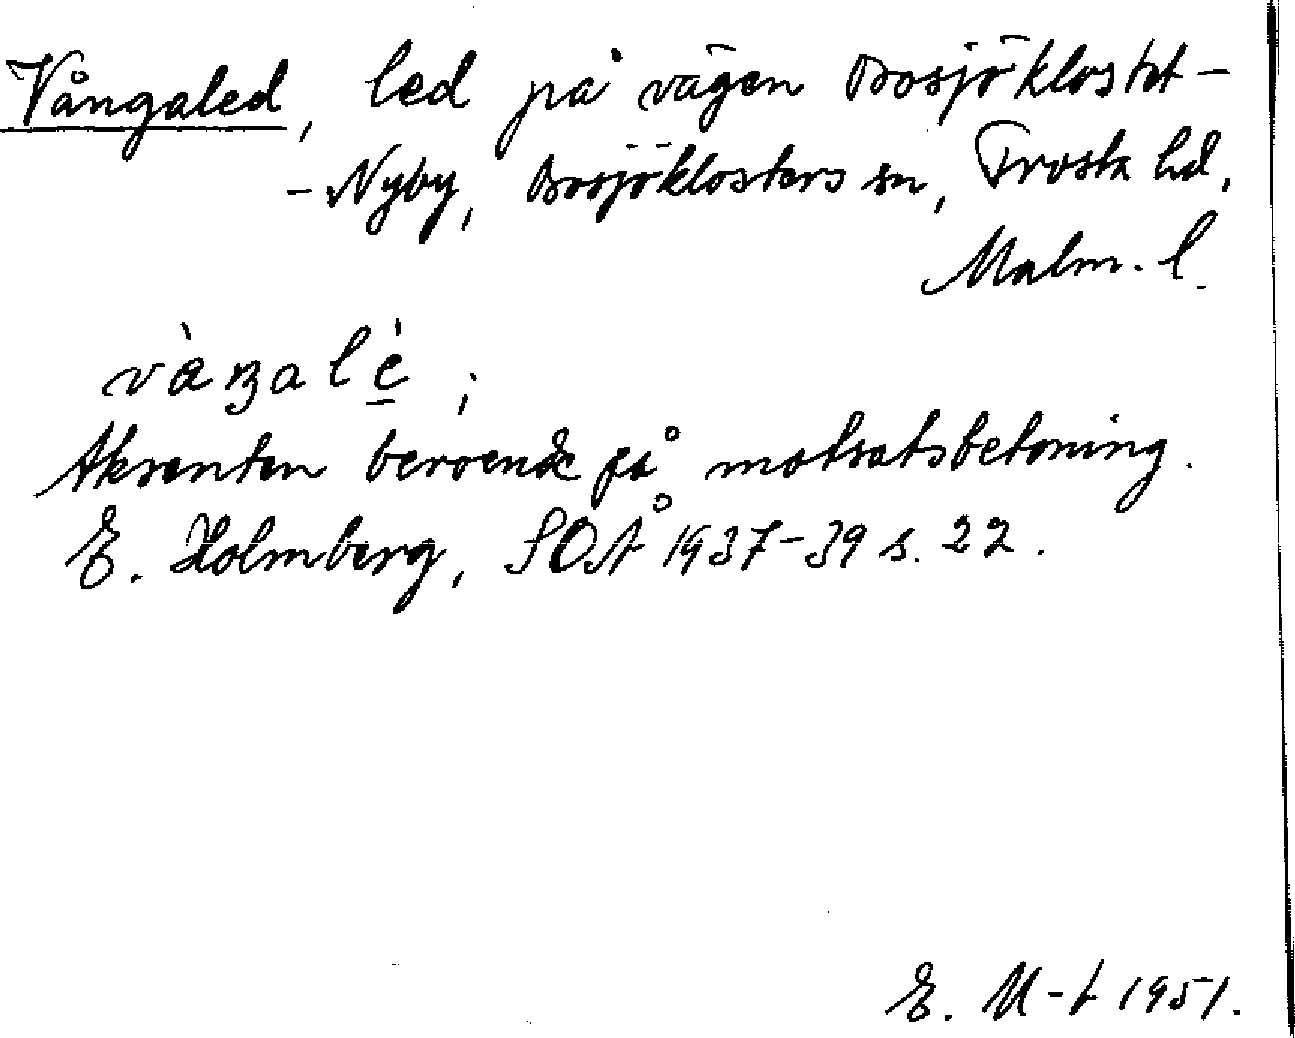 Vångaled, led på vägen Bosjöklostet -
- Nyby, Bosjöklosters sn, Frosta hd,
Malm. l.
vàŋalè ;
Aksenten beroende på motsatsbetoning.
E. Holmberg, SOÅ 1937-39 s. 22.
E. M-t 1951.